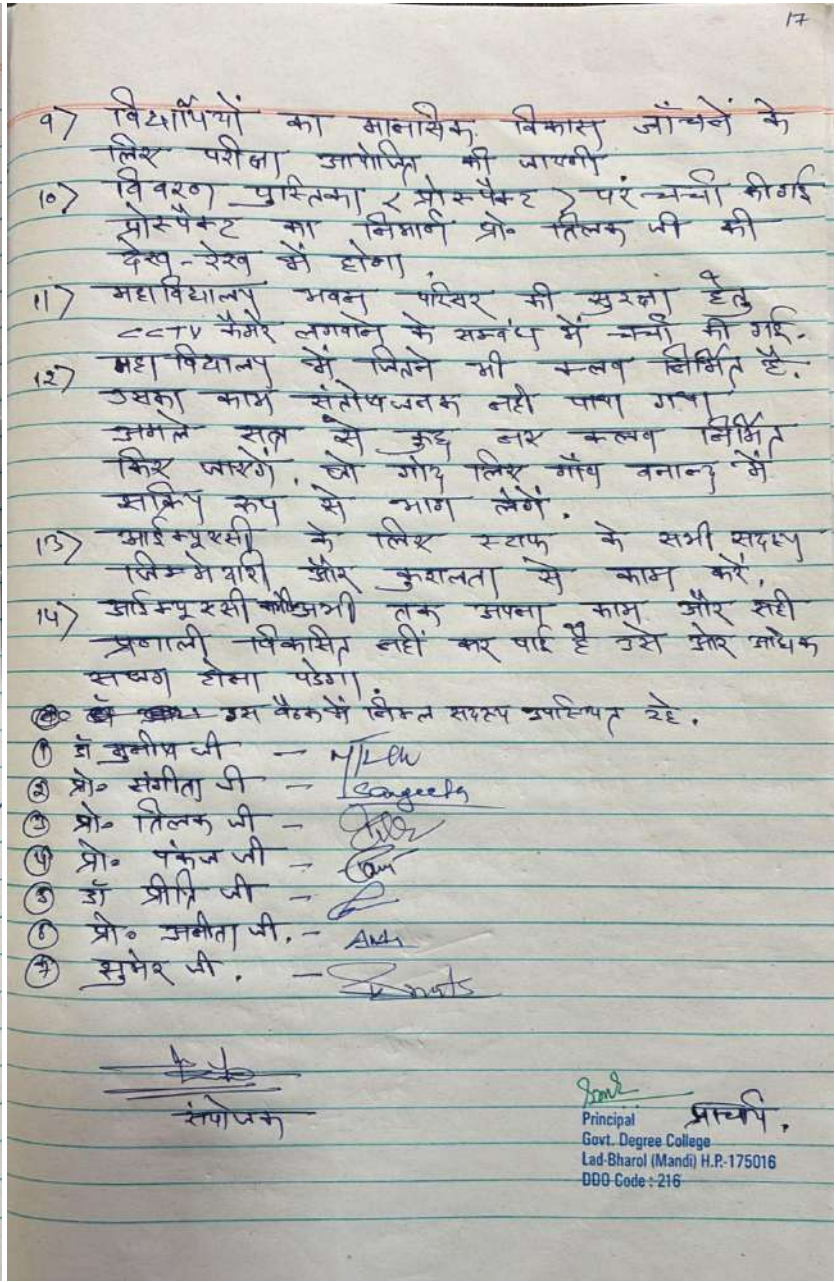 17
9> विद्यार्थियों का मानसिक विकास जाँचनें के
लिए परीक्षा आयोजित की जायगी
10> विवरण पुस्तिका ( प्रोस्पैक्ट ) पर चर्चा की गई
प्रोस्पैक्ट का निमार्ण प्रो० तिलक जी की
देख-रेख में होगा
11> महाविद्यालय भवन परिसर की सुरक्षा हेतु
CCTV कैमेरे लगवाने के सम्बंध में चर्चा की गई.
12> महा विद्यालय में जितने भी क्लब निर्मित है.
उसका काम संतोषजनक नही पाया गया
अगले सत्र से कुछ नए कल्ब निर्मित
किए जाएगें. जो गोद लिए गाँव बनान्दर में
सक्रिय रूप से भाग लेगें.
13> आईक्यूएसी के लिए स्टाफ के सभी सदस्य
जिम्मेदारी और कुशलता से काम करें.
14> आईक्यूएसी अभी तक अपना काम और सही
प्रणाली विकासित नहीं कर पाई है उसे और अधिक
सजग होना पडेगा।
इस बैठक में निम्न सदस्य उपस्थित रहे.
① डॉ मुनीष जी -
② प्रो० संगीता जी - Sangeeta
③ प्रो० तिलक जी -
④ प्रो० पंकज जी -
⑤ डॉ प्रीति जी -
⑥ प्रो० अनीता जी. -
⑦ सुमेर जी. -
संयोजक
प्राचार्य.
Principal
Govt. Degree College
Lad-Bharol (Mandi) H.P.-175016
DDO Code : 216